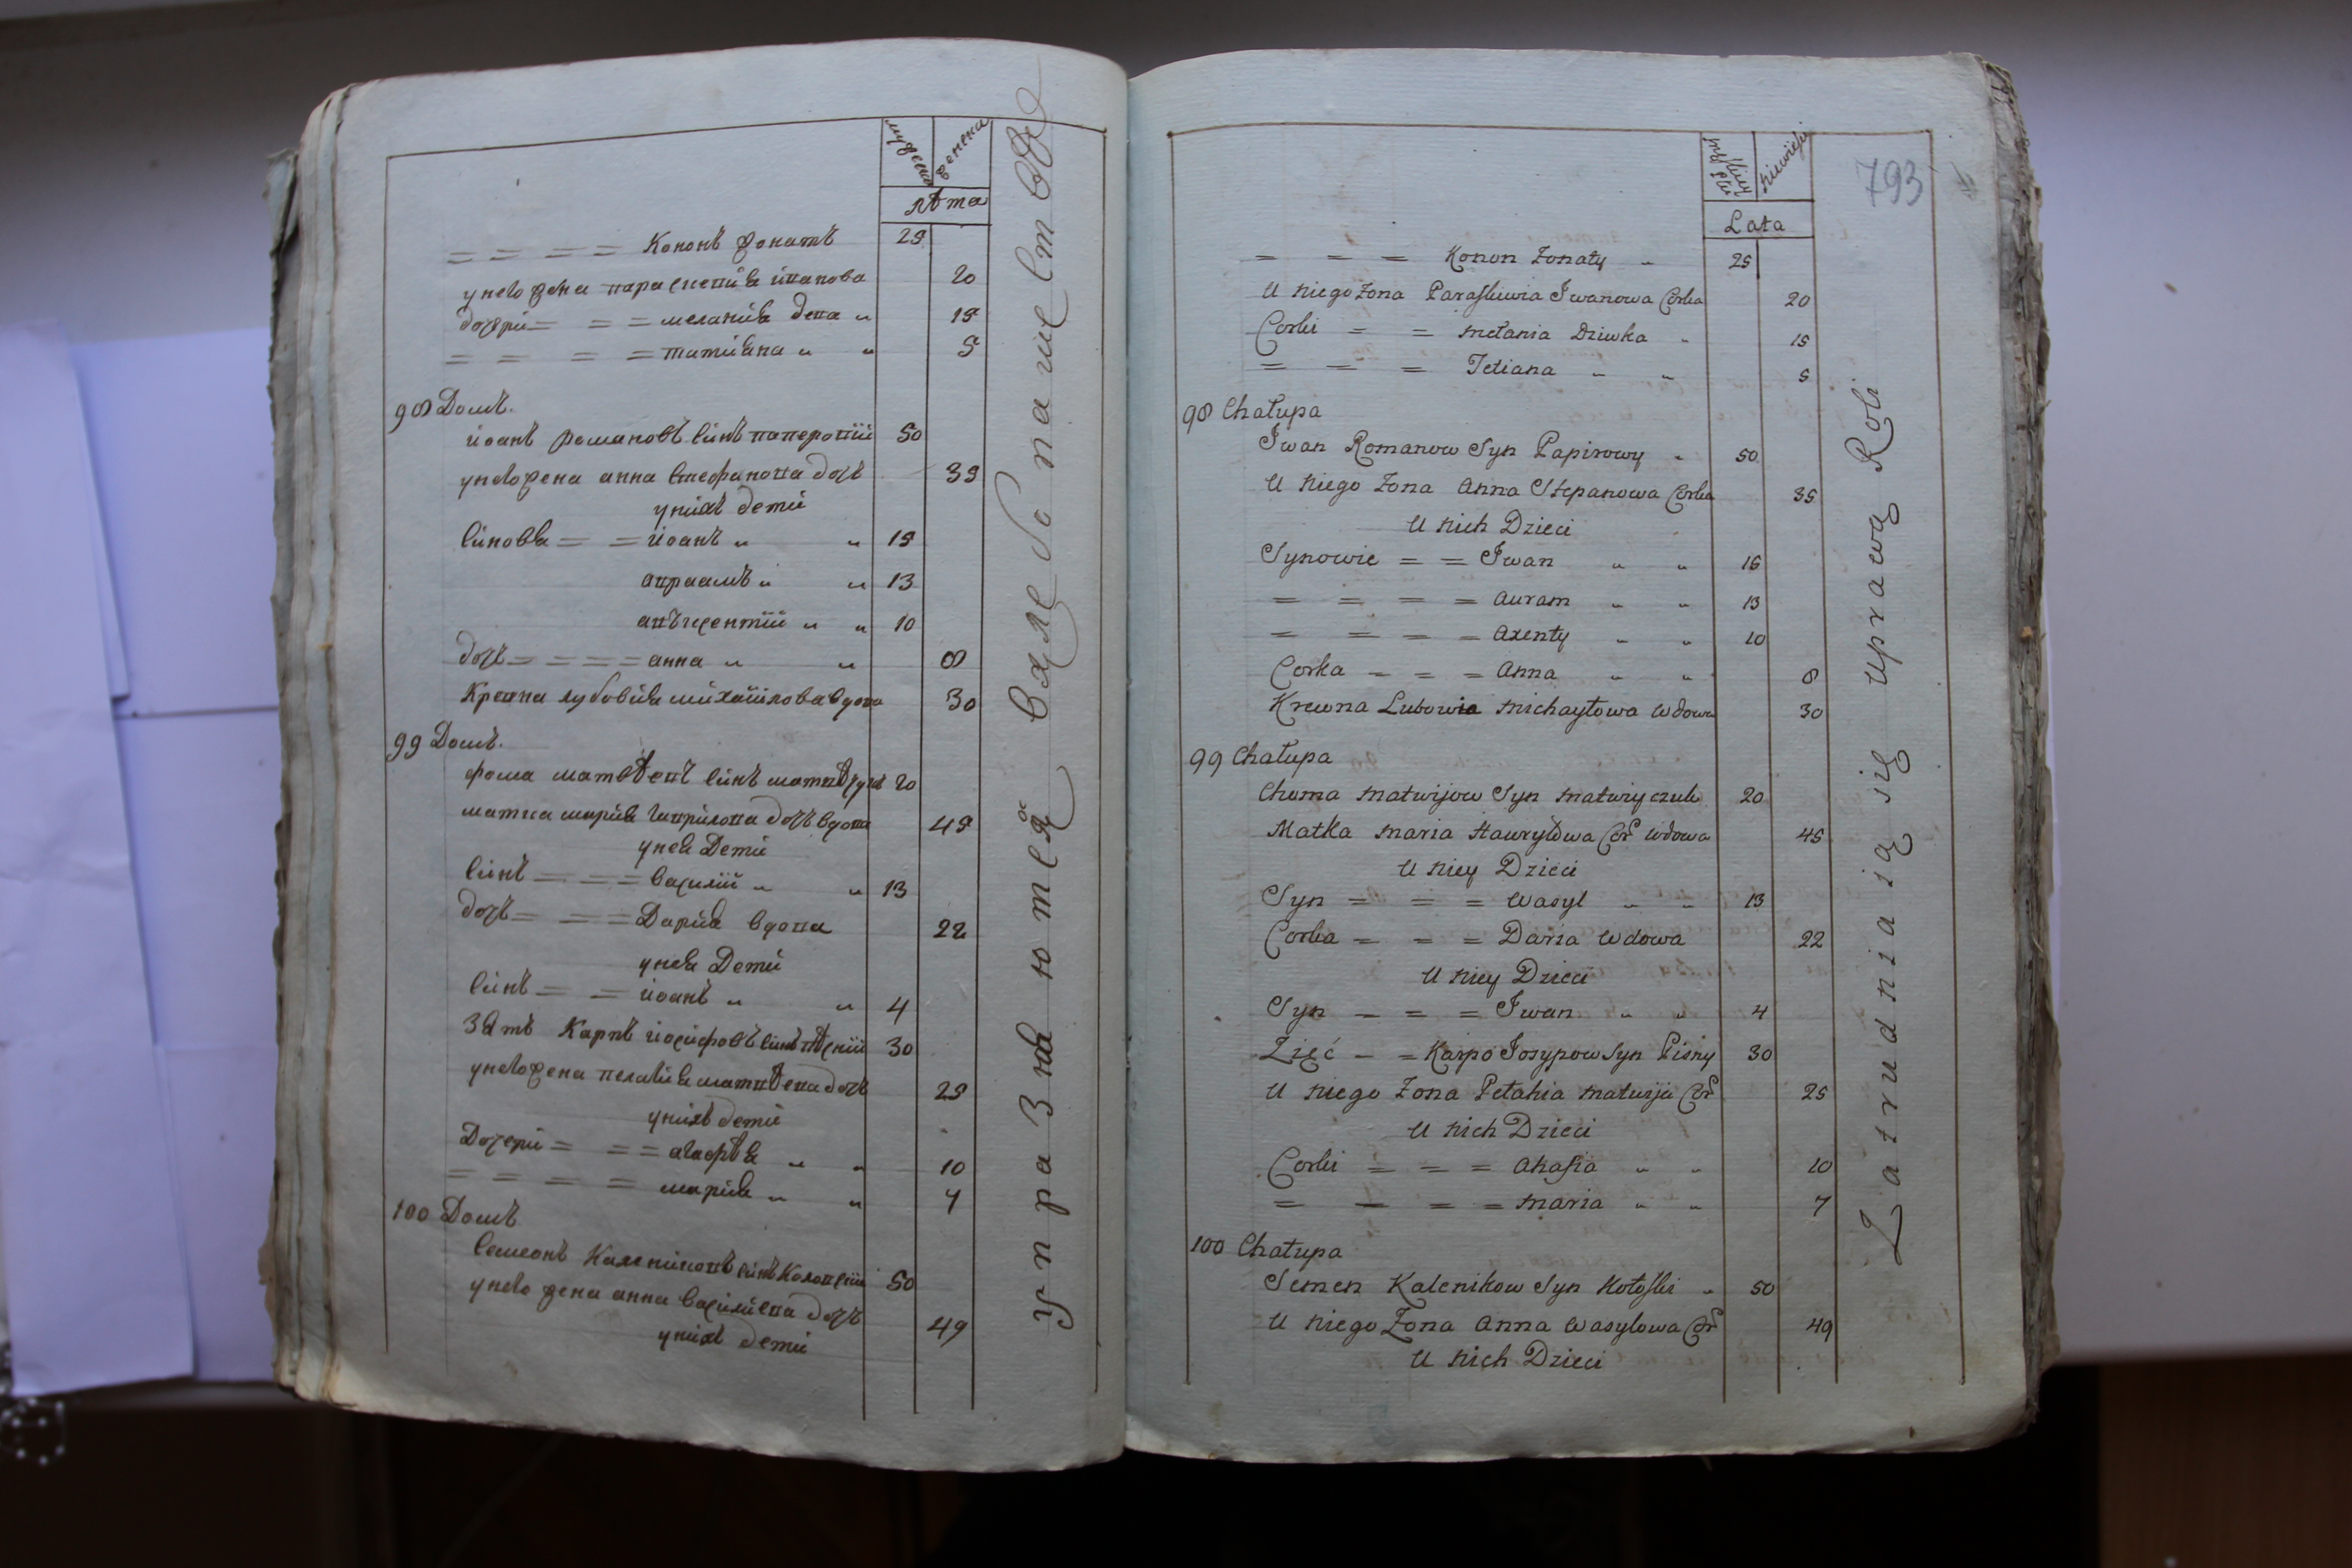 мужеска женска
лѣта
= = = = Кононъ жонатъ 25
унего жена параскевия иванова 20
дочери = = = меланія девка „ 15
= = = = татиана „ „ 5
98 Домъ.
иоанъ романовъ синъ паперовий 50
унего жена анна стефанова дочь 35
унихъ дети
синовя = = иоанъ „ „ 15
авраамъ „ „ 13
авъксентий „ „ 10
дочь = = = = анна „ „ 8
Кревна лубовія михайлова вдова 30
99 Домъ.
фома матвѣевъ синъ матвѣчукъ 20
матка марія гаврилова дочь вдова 45
унея Дети
синъ = = = василий „ „ 13
дочь = = = Дарія вдова 22
унея Дети
синъ = = иоанъ „ „ 4
Зять Карпъ иосифовъ синъ пѣсний 30
унего жена пелагия матвѣева дочь 25
унихъ дети
Дочери = = = агафѣя „ „ 10
= = = = марія „ „ 7
100 Домъ
Семионъ Калениковъ синъ Коловский 50
унего жена анна василиева дочь 49
унихъ дети
упражняются вхлебопашествѣ
793
Mężczyzn Niewiest
Lata
= = = Konon Żonaty „ 25
U Niego Żona Paraskiewia Iwanowa Corka 20
Corki = = Mełania Dziwka „ 15
= = = Tetiana „ „ 5
98 Chałupa
Iwan Romanow Syn Papirowy „ 50
U Niego Żona Anna Stepanowa Corka 35
U Nich Dzieci
Synowie = = Iwan „ „ 15
= = = = Auram „ „ 13
= = = = Axenty „ „ 10
Corka = = = Anna „ „ 8
Krewna Lubowia Michayłowa Wdowa 30
99 Chałupa
Choma Matwijow Syn Matwiyczuk 20
Matka Maria Hawryłowa Cor Wdowa 45
U Niey Dzieci
Syn = = = Wasyl „ „ 13
Corka = = = Daria Wdowa 22
U Niey Dzieci
Syn = = = Iwan „ „ 4
Zięć = = Karpo Josypow Syn Pisny 30
U Niego Żona Pełahia Matwiji Cor 25
U Nich Dzieci
Corki = = = Ahafia „ „ 10
= = = = Maria „ „ 7
100 Chałupa
Semen Kalenikow Syn Kołoski „ 50
U Niego Żona Anna Wasylowa Cor 49
U Nich Dzieci
Zatrudniaią się uprawą Roli